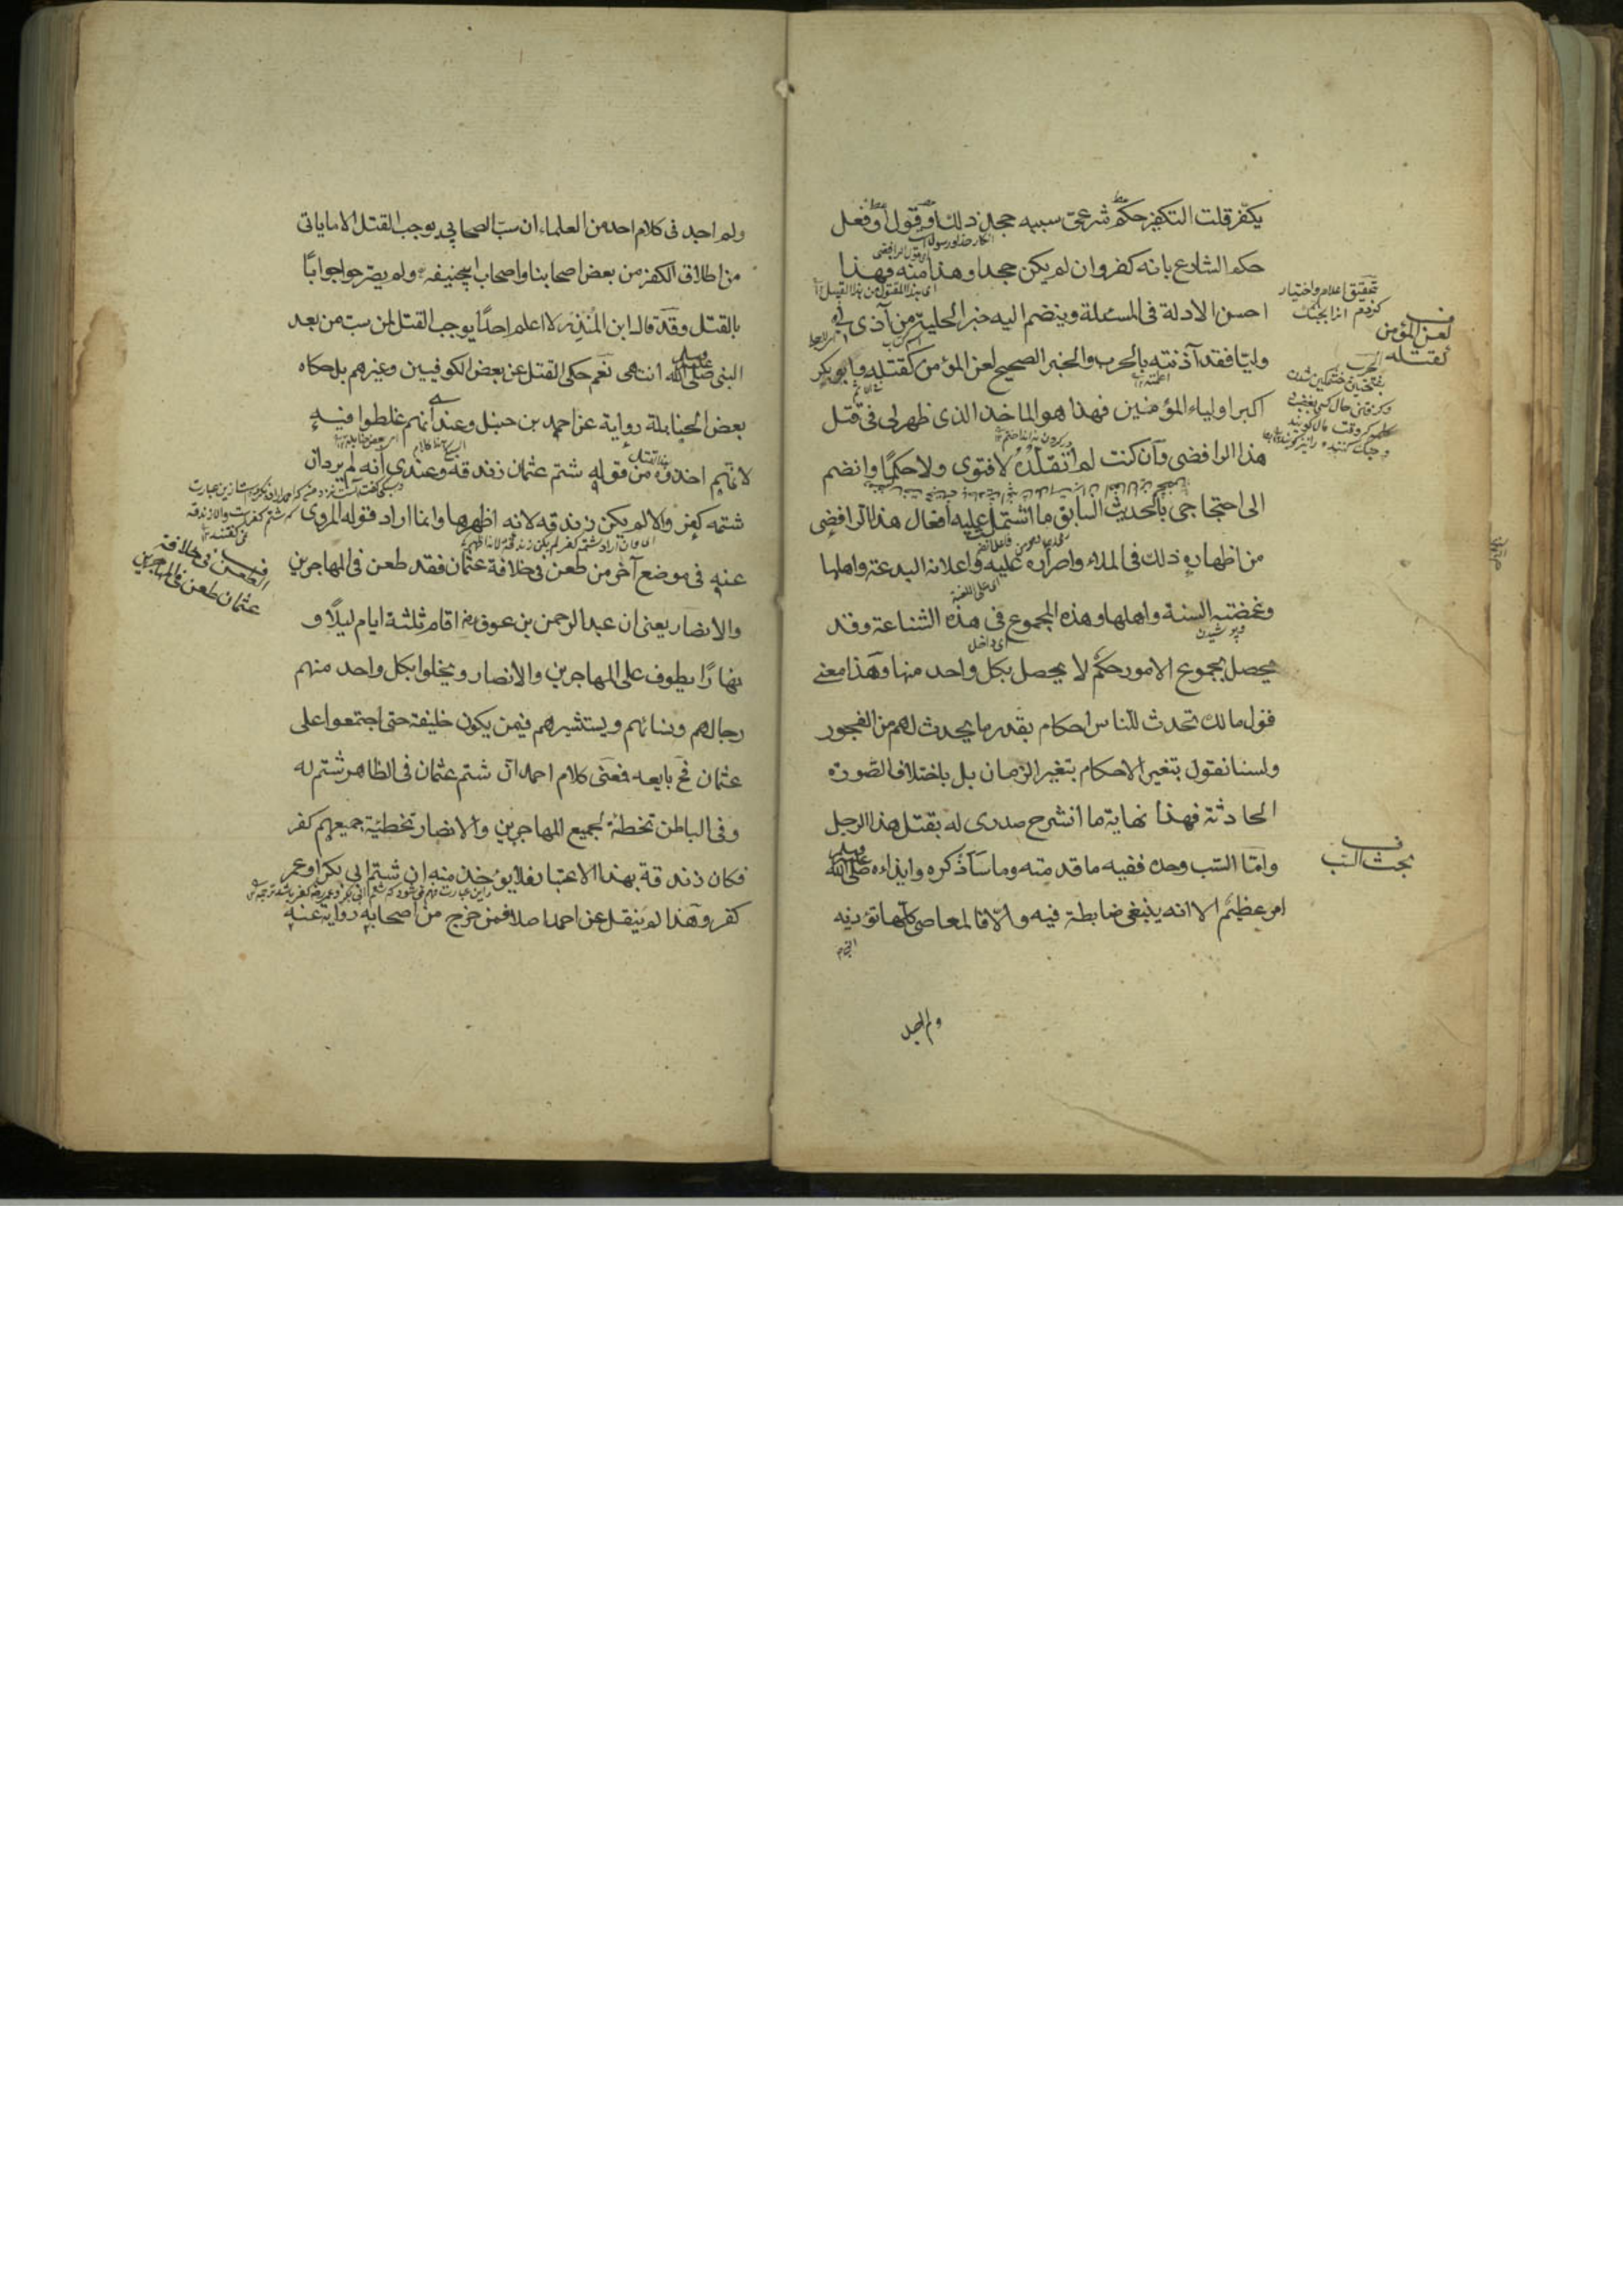 يكفر قلت التكفير حكم شرعي سببه جحد ذلك او قول او فعل
حكم الشارع بانه كفر وان لم يكن جحدا وهذا منه فهذا
احسن الادلة في المسئلة وينضم اليه خبر الحلية من آذى لي
وليا فقد آذنته بالحرب والخبر الصحيح لعن المؤمن كقتله وابوبكر
اكبر اولياء المؤمنين فهذا هو الماخذ الذي ظهر لي في قتل
هذا الرافضي وان كنت لم اتقلده لا فتوى ولا حكما وانضم
الى احتجاجي بالحديث السابق ما اشتمل عليه افعال هذا الرافضي
من اظهاره ذلك في الملاء واصراره عليه واعلانه البدعة واهلها
وغمضته السنة واهلها وهذه المجموع في هذه الشناعة وقد
يحصل بمجموع الامور حكم لا يحصل بكل واحد منها وهذا معنى
قول مالك تحدث للناس احكام بقدر ما يحدث لهم من الفجور
ولسنا نقول بتغير الاحكام بتغير الزمان بل باختلاف الصورة
الحادثة فهذا نهاية ما انشرح صدري له بقتل هذا الرجل
واما السب وحده ففيه ما قدمته وما ساذكره وايذاءه صلى الله عليه وسلم
امر عظيم الا انه ينبغي ضابطة فيه والا فالمعاصي كلها تؤذيه
ولم اجد
ف
لعن المؤمن
كقتله
ف
بحث السب
ولم اجد في كلام احد من العلماء ان سب الصحابي يوجب القتل الا ما ياتي
من اطلاق الكفر من بعض اصحابنا واصحاب ابيحنيفه ولم يصرحوا جوابا
بالقتل وقد قال ابن المنذر لا اعلم احدا يوجب القتل لمن سب من بعد
النبي صلى الله عليه وسلم انتهى نعم حكي القتل عن بعض الكوفيين وغيرهم بل حكاه
بعض الحنابلة رواية عن احمد بن حنبل وعندي انهم غلطوا فيه
لانهم اخذوه من قوله شتم عثمان زندقه وعندي انه لم يرد ان
شتمه كفر والا لم يكن زندقه لانه اظهرها وانما اراد قوله المروي
عنه في موضع آخر من طعن في خلافة عثمان فقد طعن في المهاجرين
والانصار يعني ان عبد الرحمن بن عوف رض اقام ثلثة ايام ليلا و
نهارا يطوف على المهاجرين والانصار ويخلوا بكل واحد منهم
رجالهم ونسائهم ويستشيرهم فيمن يكون خليفة حتى اجتمعوا على
عثمان فح بايعه فمعنى كلام احمد ان شتم عثمان في الظاهر شتم له
وفي الباطن تخطئة لجميع المهاجرين والانصار تخطئة جميعهم كفر
فكان زندقة بهذا الاعتبار فلا يؤخذ منه ان شتم ابي بكر او عمر
كفر وهذا لم ينقل عن احمد اصلا فمن خرج من اصحابه رواية عنه
ف
الطعن في خلافة
عثمان طعن في المهاجرين